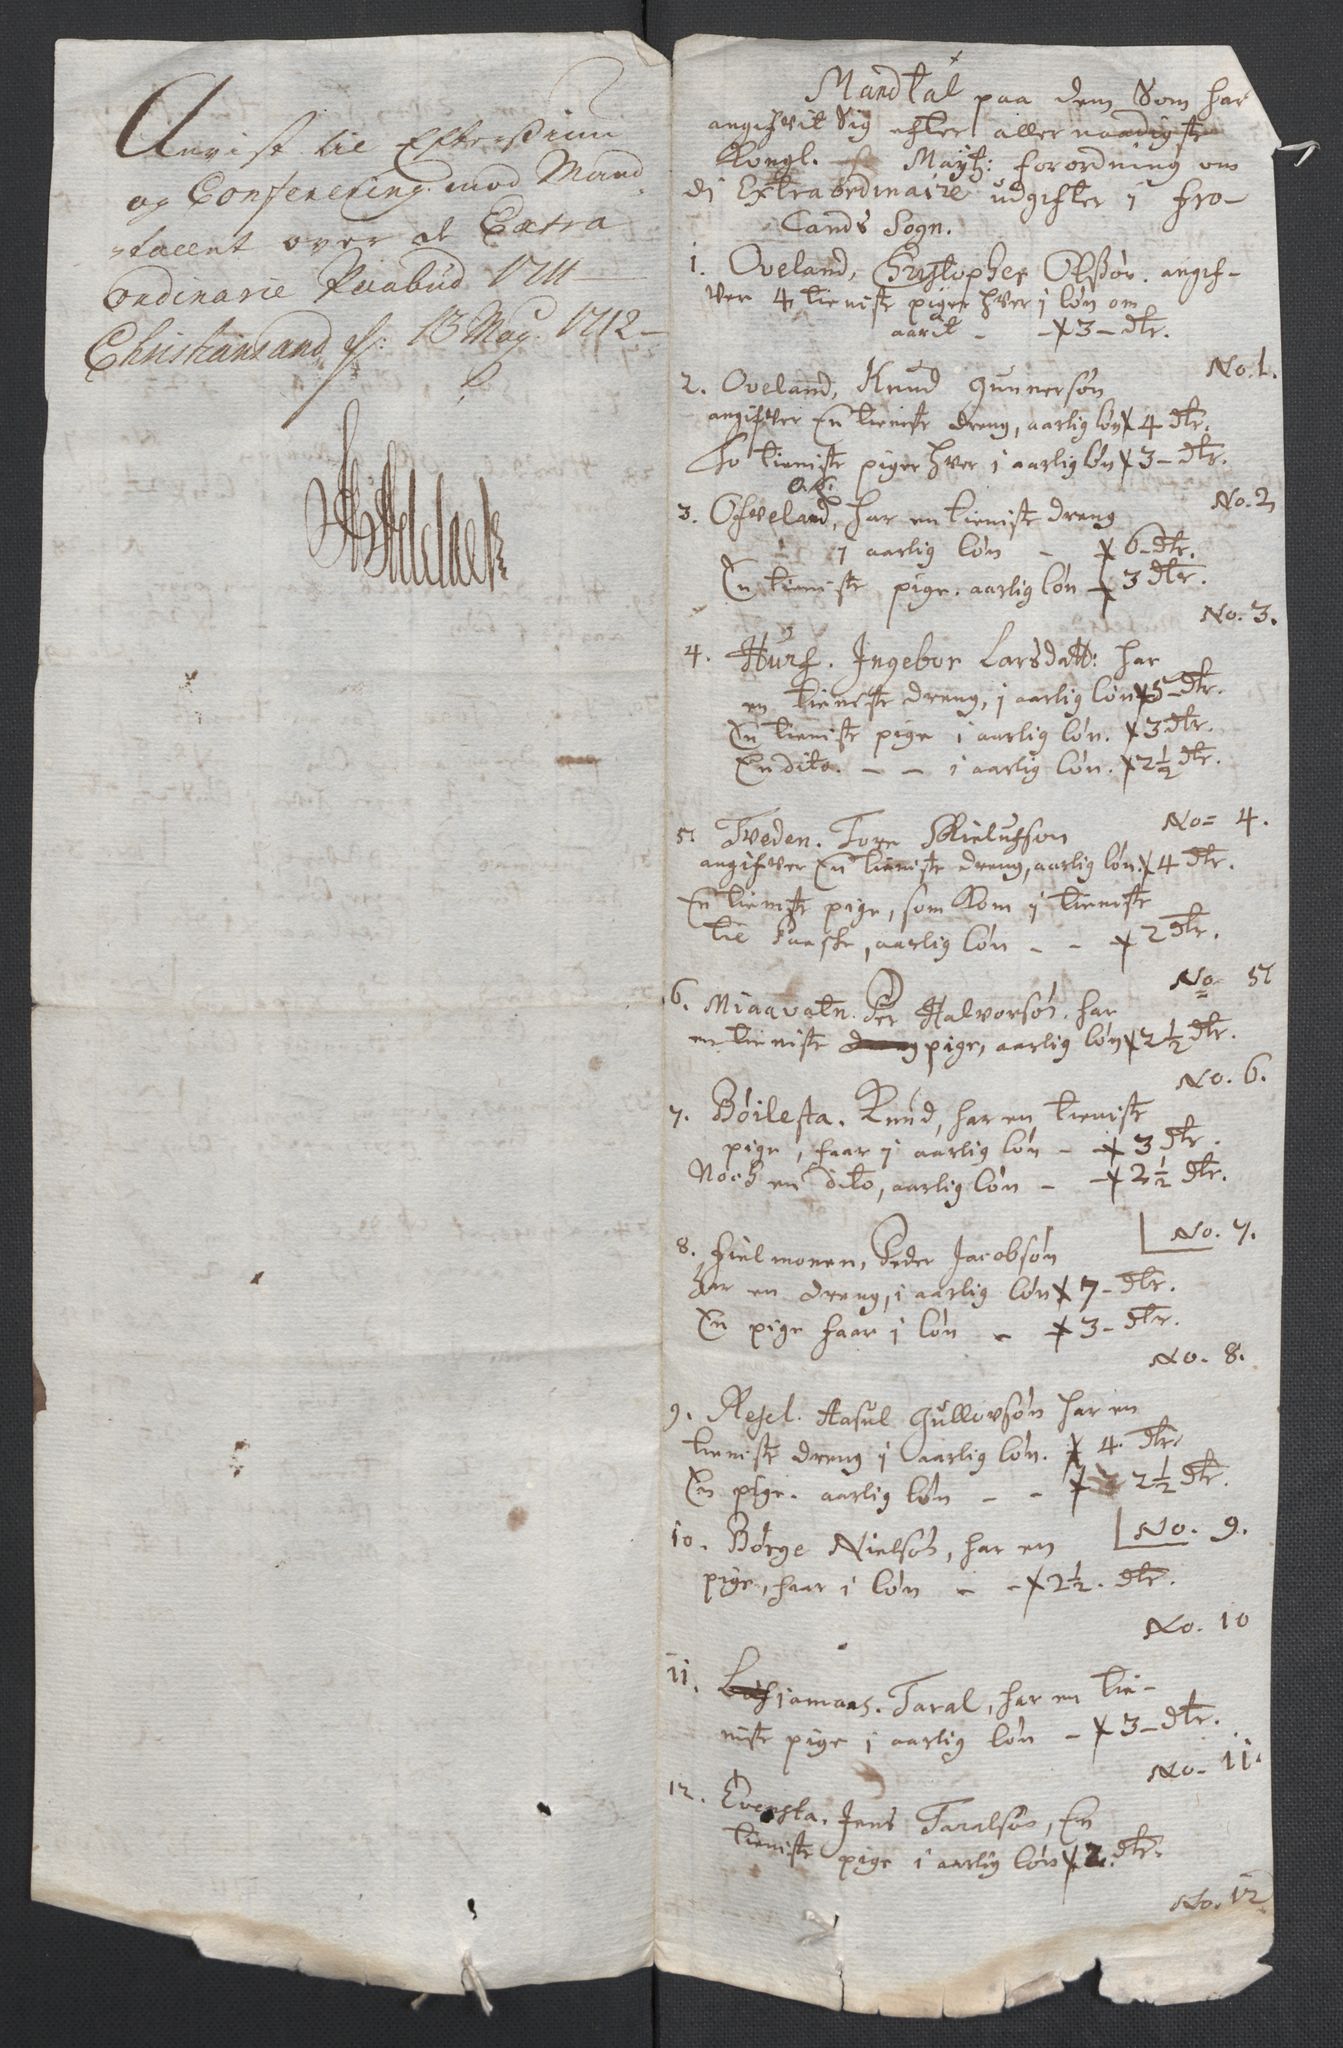 Anvist til Efterssiun
og Conferering mod Mand
tallent over de Extra
Ordinarie Paabud 1711
Christiansand d: 13 May 1712
Mandtal paa dem Som har
angifvit Sig efter allernaadigste
Kongl. Mayt: forordning om
di Extraordinaire udgifter i Fro-
Lands Sogn.
1. Oveland, Christopher Olssøn. angif-
ver 4 tieniste piger hver i løn om
aarit - - 3 - dlr.
No. 1.
2. Oveland, Knud Gunnersøn
angifver En tieniste dreng, aarlig løn 4 dlr.
To tieniste piger hver i aarlig løn 3 - dlr.
No. 2
3. Ofveland, har en tieniste dreng
i aarlig løn - 6 - dlr.
En tieniste pige. aarlig løn - 3 dlr.
No. 3.
4. Hurf. Ingebor Larsdatt: har
en tieniste dreng, i aarlig løn 5 - dlr.
En tieniste pige i aarlig løn. 3 dlr.
En dito. - - i aarlig løn. 2½ dlr.
No = 4.
5. Tveden. Tore Kielufson
angifver En tieniste dreng, aarlig løn. 4 dlr.
En tieniste pige, som kom i tieniste
til paaske, aarlig løn - - 2 dlr.
No 5
6. Miaavatn. Per Halvorsøn. har
en tieniste pige, aarlig løn 2½ dlr.
No. 6.
7. Bøilesta. Knud, har en tieniste
pige, faar i aarlig løn - 3 dlr.
Noch en dito, aarlig løn - - 2½ dlr.
No. 7.
8. Hielmonen, Peder Jacobsøn
har en dreng, i aarlig løn 7 - dlr.
En pige faar i løn - 3 - dlr.
No. 8.
9. Resel. Aasul Gullovsøn har en
tieniste dreng i aarlig løn. 4. dlr.
En pige. aarlig løn - - 2½ dlr.
No. 9.
10. Børge Nielsøn, har en
pige, faar i løn - - 2½. dlr.
No. 10
11. Taral, har en tie-
niste pige i aarlig løn - 3 - dlr.
No. 11.
12. Evensta. Jens Taralsøn, En
tieniste pige i aarlig løn 2. dlr.
No. 12